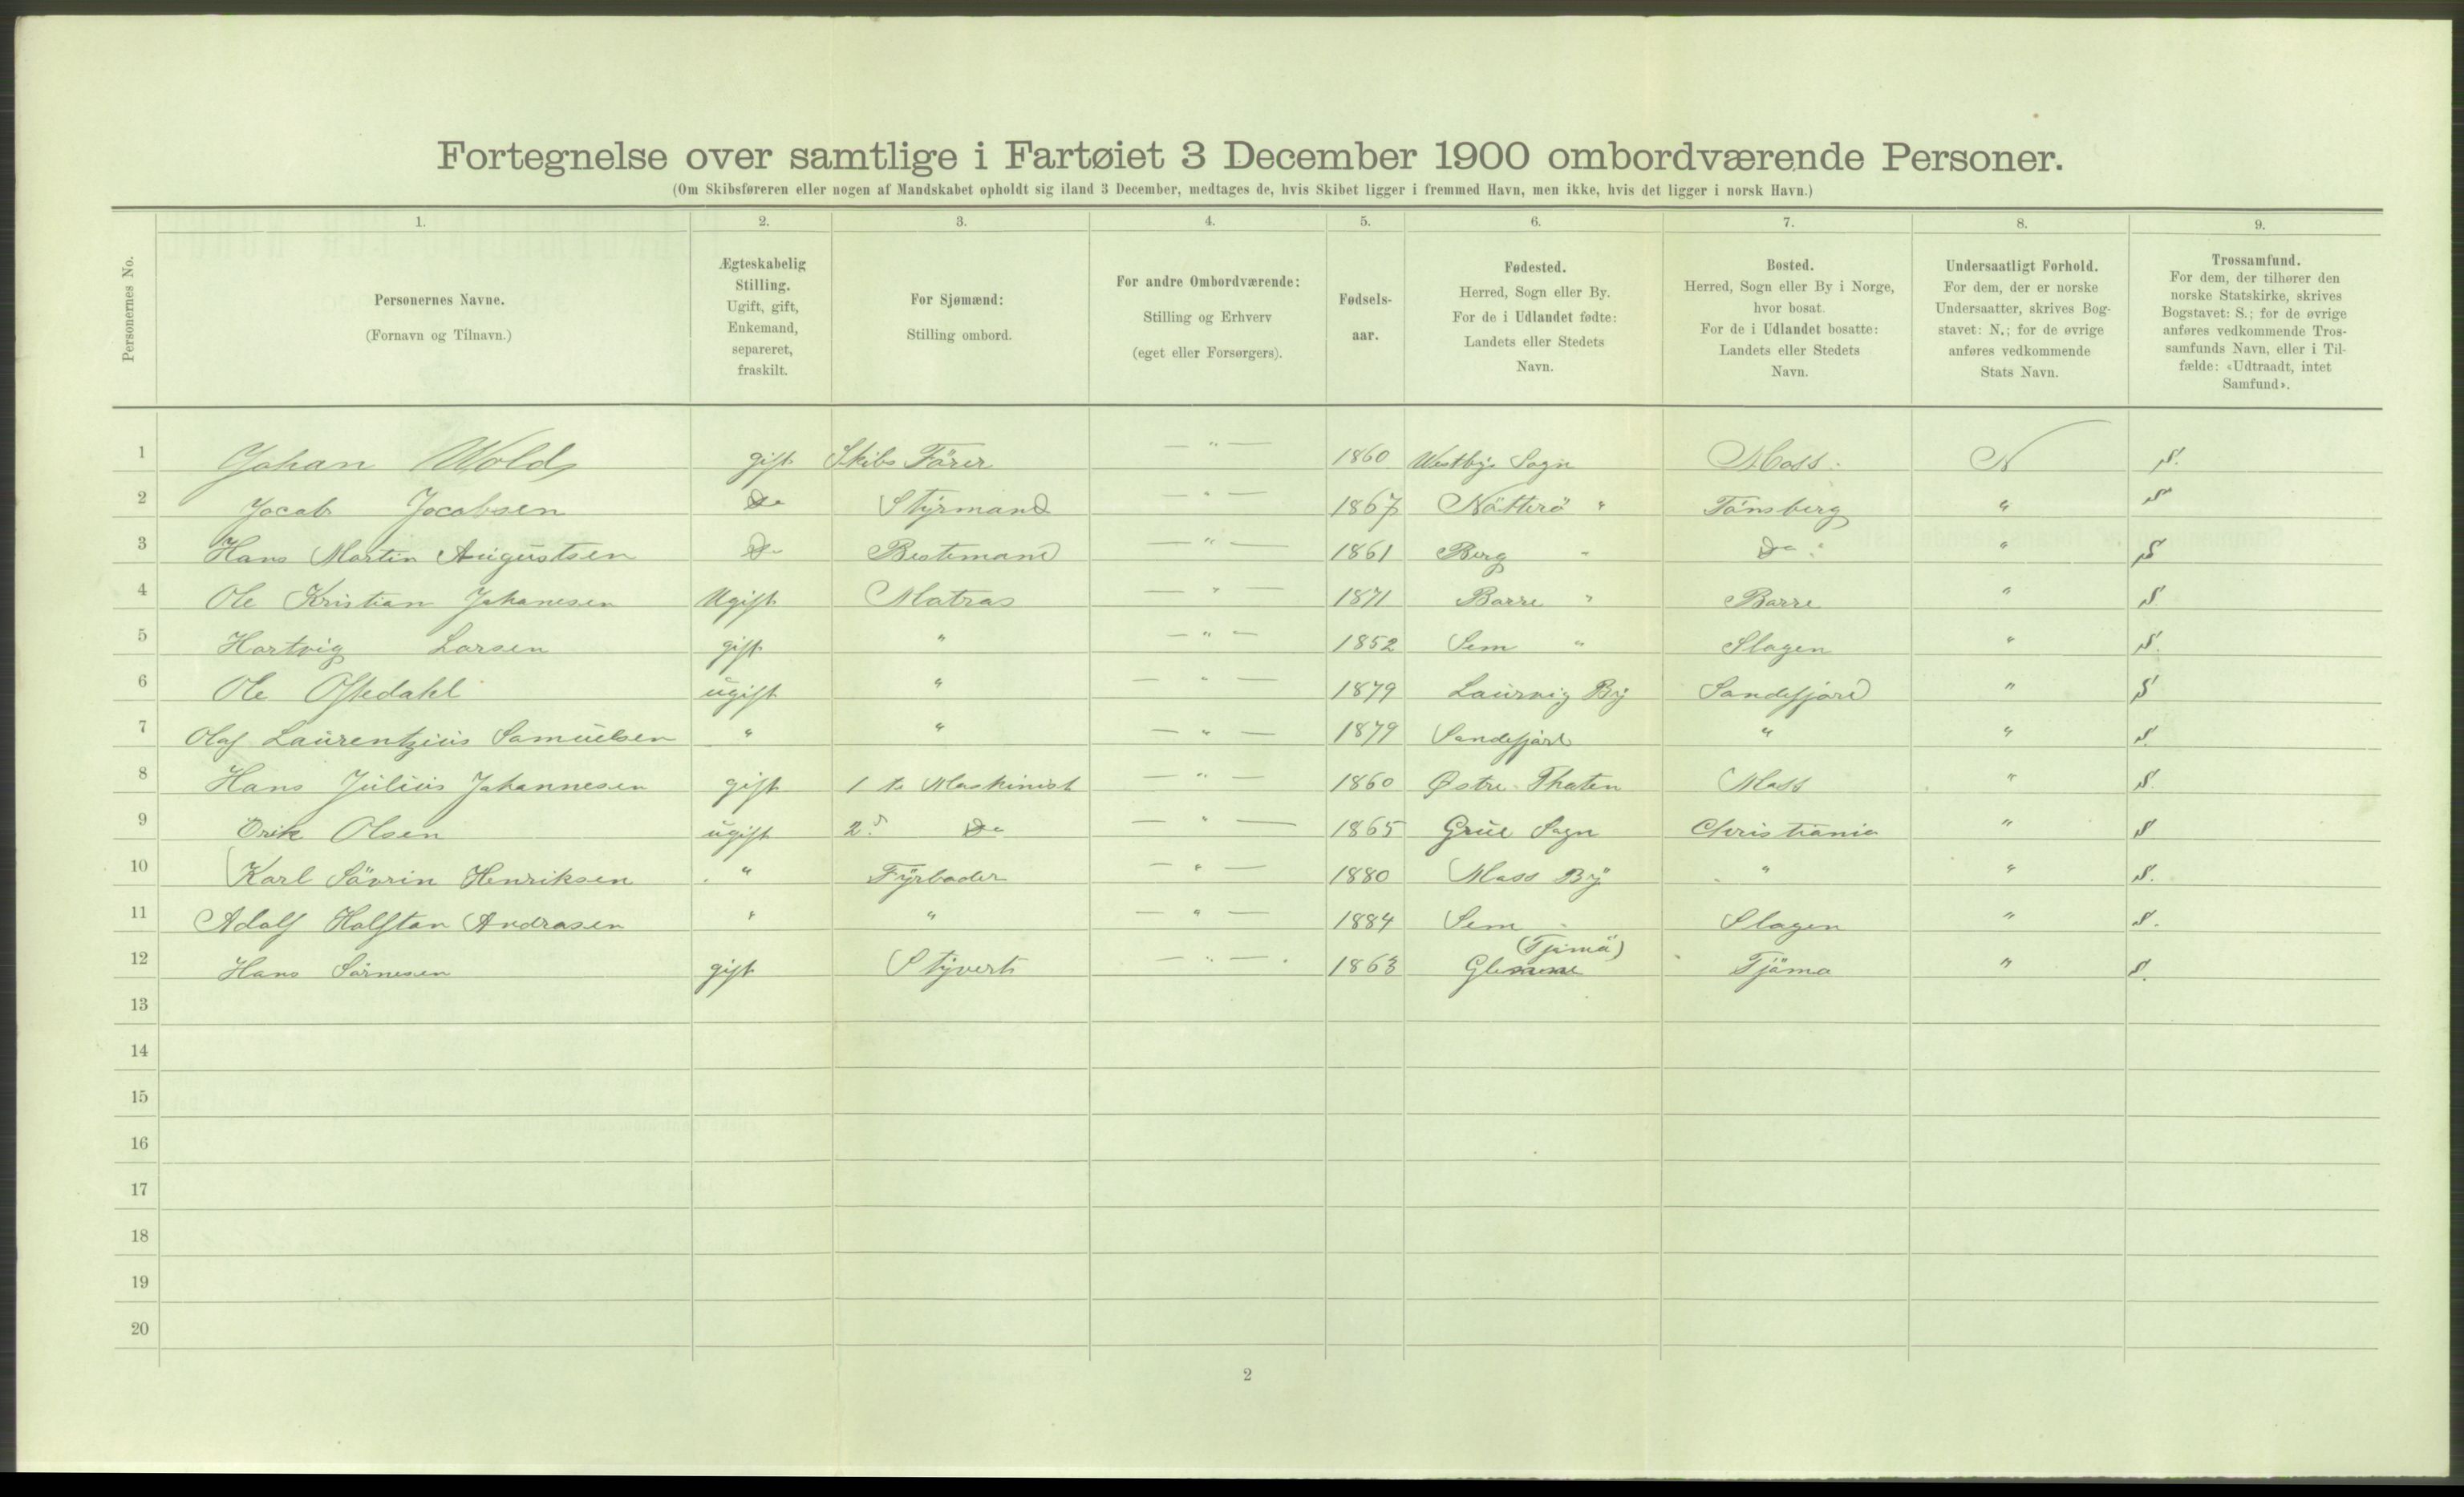 Fortegnelse over samtlige i Fartøiet 3 December 1900 ombordværende Personer.
(Om Skibsføreren eller nogen af Mandskabet opholdt sig iland 3 December, medtages de, hvis Skibet ligger i fremmed Havn, men ikke, hvis det ligger i norsk Havn.)
Personernes No.
1. 2. 3. 4. 5. 6. 7. 8. 9.
Personernes Navne.
(Fornavn og Tilnavn.)
Ægteskabelig
Stilling.
Ugift, gift,
Enkemand,
separeret,
fraskilt.
For Sjømænd:
Stilling ombord.
For andre Ombordværende:
Stilling og Erhverv
(eget eller Forsørgers).
Fødsels-
aar.
Fødested.
Herred, Sogn eller By.
For de i Udlandet fødte:
Landets eller Stedets
Navn.
Bosted.
Herred, Sogn eller By i Norge,
hvor bosat.
For de i Udlandet bosatte:
Landets eller Stedets
Navn.
Undersaatligt Forhold.
For dem, der er norske
Undersaatter, skrives Bog-
stavet: N.; for de øvrige
anføres vedkommende
Stats Navn.
Trossamfund.
For dem, der tilhører den
norske Statskirke, skrives
Bogstavet: S.; for de øvrige
anføres vedkommende Tros-
samfunds Navn, eller i Til-
fælde: «Udtraadt, intet
Samfund».
1 Johan Wold gift Skibs Förer — " — 1860 Westby Sogn Moss. N S.
2 Jacob Jacobsen Do Styrmand — " — 1867 Nötterö " Tönsberg " S
3 Hans Martin Augustsen Do Bestemand — " — 1861 Berg " Do " S
4 Ole Kristian Johanesen Ugift Matros — " — 1871 Borre " Borre " S
5 Hartvig Larsen gift " — " — 1852 Sem " Slagen " S.
6 Ole Oftedahl ugift " — " — 1879 Laurvig By Sandefjord " S
7 Olaf Laurentzius Samuelsen " " — " — 1879 Sandefjord " " S.
8 Hans Julius Johannesen gift 1 te Maskinist — " — 1860 Østre Thoten Moss " S.
9 Erik Olsen ugift 2d Do — " — 1865 Grue Sogn Christiania " S
10 Karl Sövrin Henriksen " Fyrböder — " — 1880 Moss By " " S.
11 Adolf Halftan Andrasen " " — " — 1884 Sem Slagen " S.
(Tjömö)
12 Hans Sörnesen gift Styvert — " — 1863 Tjömö " S.
13
14
15
16
17
18
19
20
2